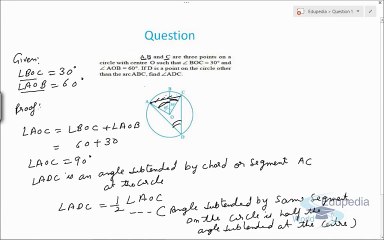 Edupedia > Question 1
Question
A, B and C are three points on a
circle with centre O such that ∠ BOC = 30° and
∠ AOB = 60°. If D is a point on the circle other
than the arc ABC, find ∠ADC
Given:
∠BOC = 30°
∠AOB = 60°
Proof:
∠AOC = ∠BOC + ∠AOB
= 60 + 30
∠AOC = 90°
∠ADC is an angle subtended by chord or segment AC
at the circle
∠ADC = 1/2 ∠AOC
--- (Angle subtended by same segment
on the circle is half the
angle subtended at the centre)